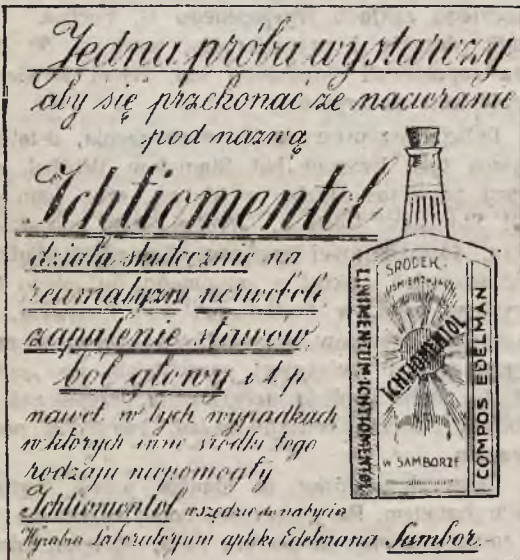 Jedna próba wystarczy
aby się przekonać że nacieranie
pod nazwą
Ichtiomentol
działa skutecznie na
reumatyzm nerwobole
zapalenie stawów
ból głowy i t p
nawet w tych wypadkach
w których inne środki tego
rodzaju niepomogły
Ichtiomentol wszędzie do nabycia
Wyrabia Laboratoryum apteki Edelmana Sambor.
ŚRODEK
UŚMIERZAJĄCY
ICHTIOMENTOL
W SAMBORZE
LINIMENTUM-ICHTIOMENTOL
COMPOS EDELMAN